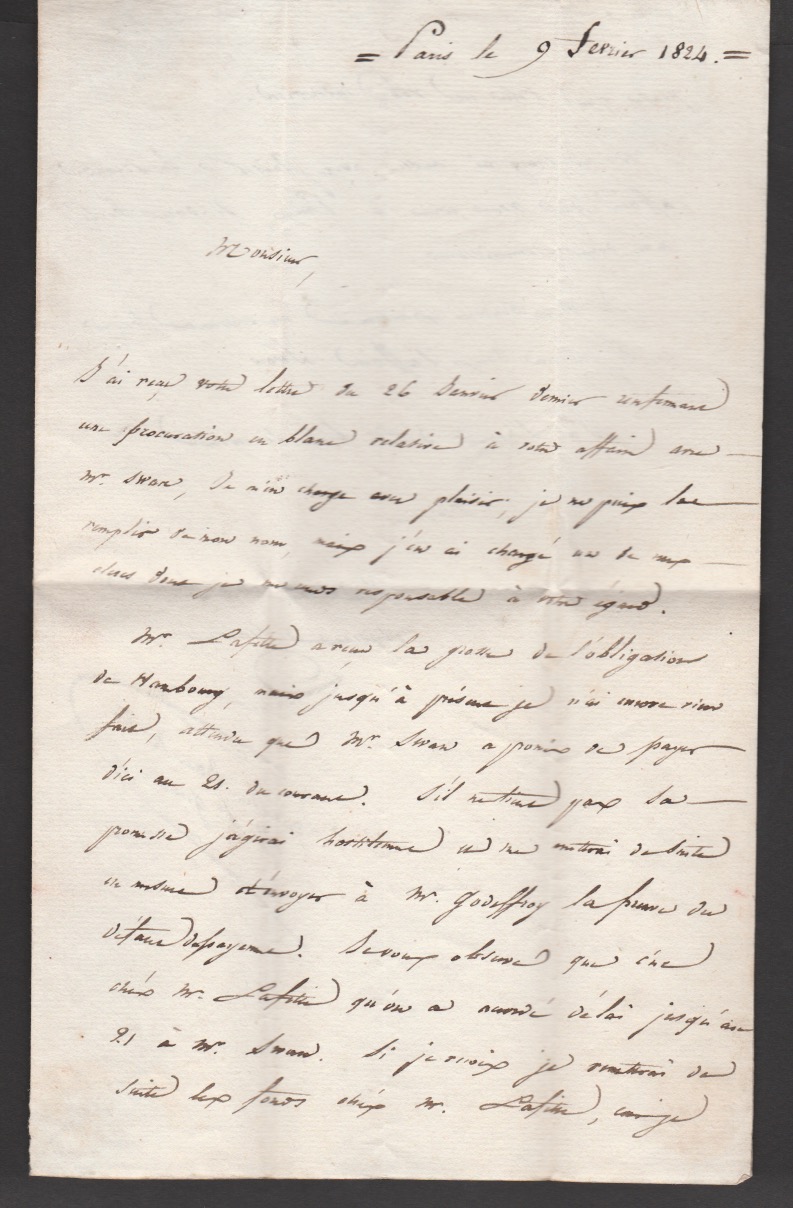 = Paris le 9 fevrier 1824. =
Monsieur,
J'ai reçu votre lettre du 26 Janvier dernier renfermant
une procuration en blanc relative à votre affaire avec
Mr. Swan, Je m'en charge avec plaisir; je ne puis la
remplir de mon nom, mais j'en ai chargé un de mes
clercs dont je me rends responsable à votre égard.
Mr. Lafitte a recu la grosse de l'obligations
de Hambourg, mais jusqu'à présent je n'ai encore rien
fait, attendu que Mr. Swan a promis de payer
d'ici au 21. du courant. S'il ne tient pas sa
promesse j'agirai et me mettrai de suite
en mesure d'envoyer à Mr. Godeffroy la preuve du
défaut de payement. Je vous observe que c'est
chéz Mr. Lafitte qu'on a accordé délai jusqu'au
21 à Mr. Swan. Si je reçois je remettrai de
suite les fonds chéz Mr. Lafitte, car je